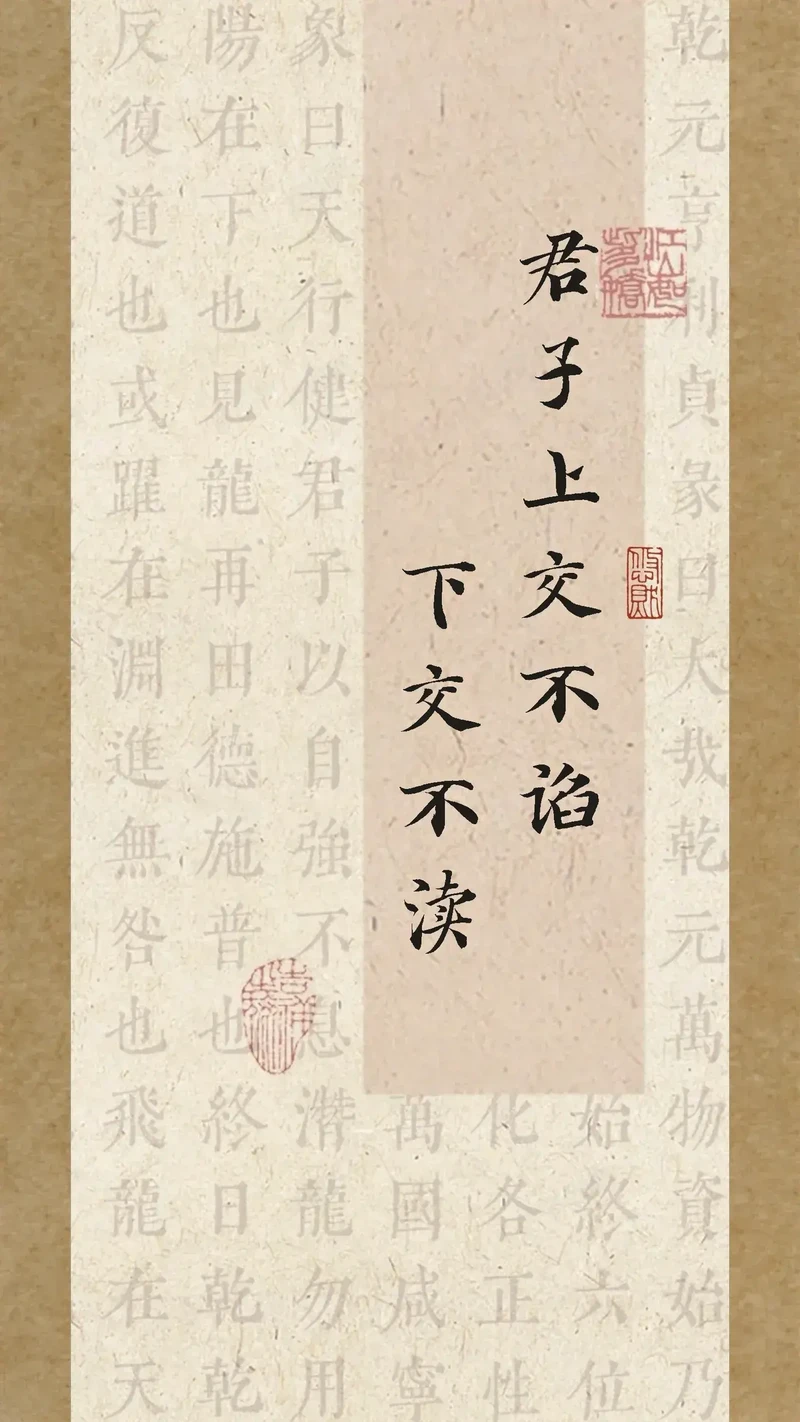 君子上交不谄
下交不渎
乾元亨利貞彖曰大哉乾元萬物資始乃
始終六位
化各正性
萬國咸寧
象曰天行健君子以自強不息潛龍勿用
陽在下也見龍再田德施普也終日乾乾
反復道也或躍在淵進無咎也飛龍在天